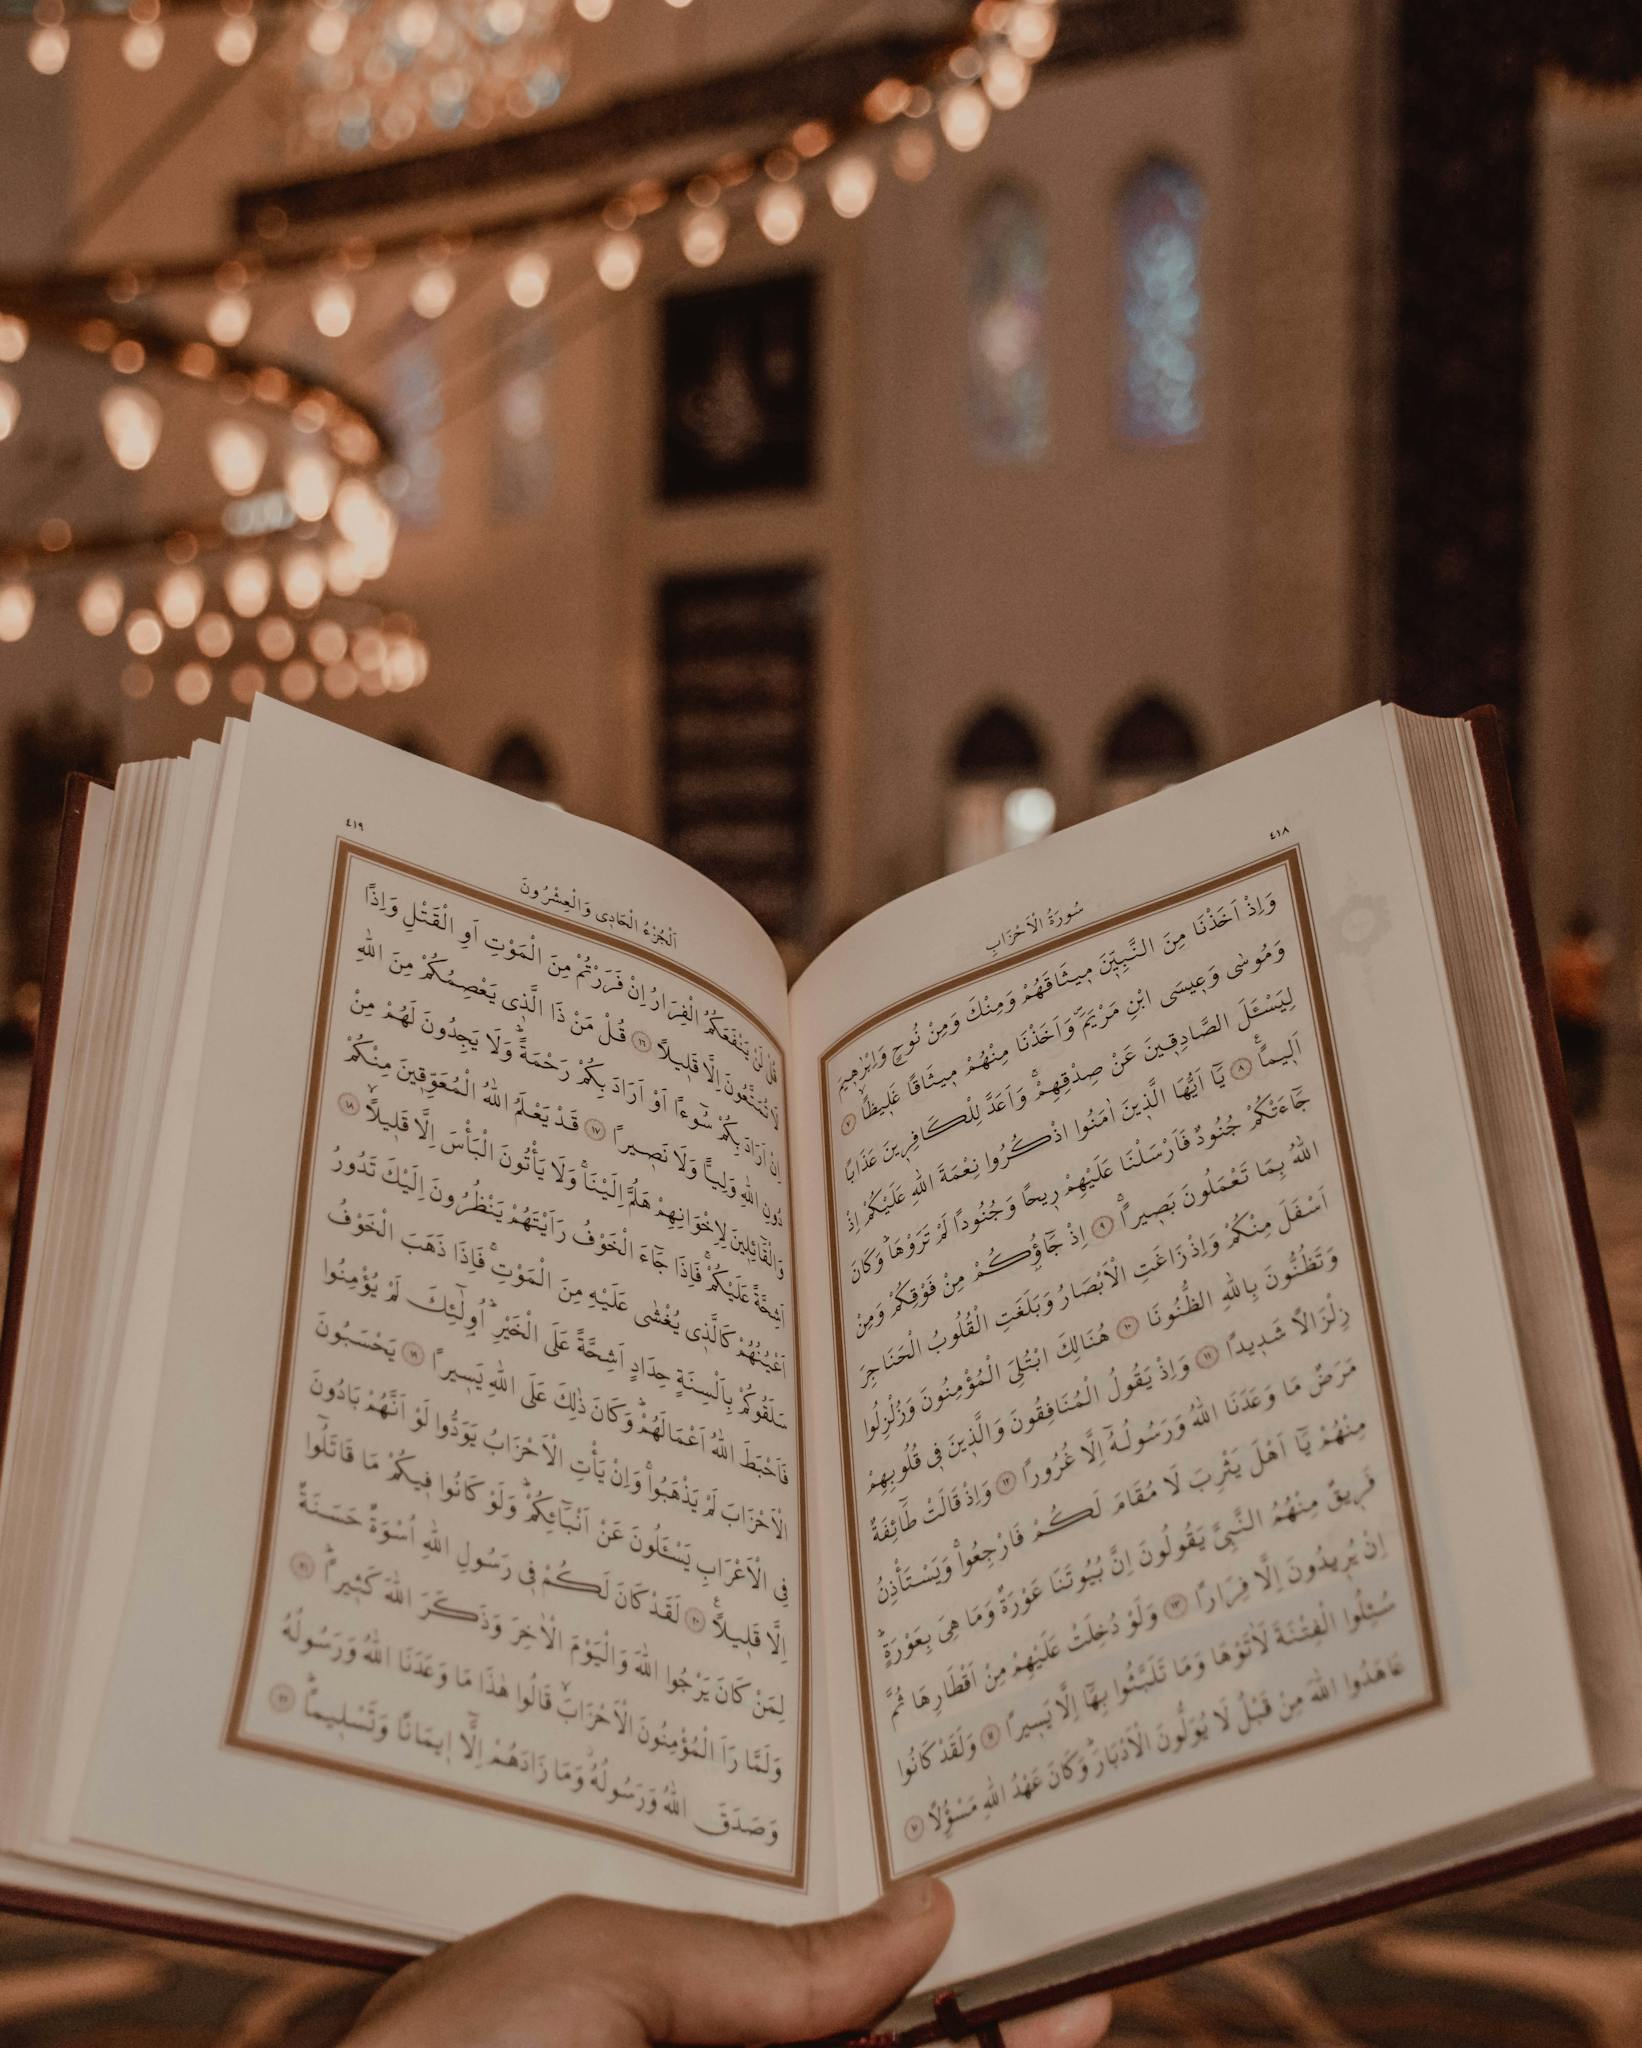 ٤١٨
سُورَةُ الْاَحْزَابِ
وَاِذْ اَخَذْنَا مِنَ النَّبِيّ۪نَ م۪يثَاقَهُمْ وَمِنْكَ وَمِنْ نُوحٍ وَاِبْرٰه۪يمَ
وَمُوسٰى وَع۪يسَى ابْنِ مَرْيَمَۖ وَاَخَذْنَا مِنْهُمْ م۪يثَاقًا غَل۪يظًاۙ ٧
لِيَسْـَٔلَ الصَّادِق۪ينَ عَنْ صِدْقِهِمْۚ وَاَعَدَّ لِلْكَافِر۪ينَ عَذَابًا
اَل۪يمًا۟ ٨ يَٓا اَيُّهَا الَّذ۪ينَ اٰمَنُوا اذْكُرُوا نِعْمَةَ اللّٰهِ عَلَيْكُمْ اِذْ
جَٓاءَتْكُمْ جُنُودٌ فَاَرْسَلْنَا عَلَيْهِمْ ر۪يحًا وَجُنُودًا لَمْ تَرَوْهَاۜ وَكَانَ
اللّٰهُ بِمَا تَعْمَلُونَ بَص۪يرًاۚ ٩ اِذْ جَٓاؤُ۫كُمْ مِنْ فَوْقِكُمْ وَمِنْ
اَسْفَلَ مِنْكُمْ وَاِذْ زَاغَتِ الْاَبْصَارُ وَبَلَغَتِ الْقُلُوبُ الْحَنَاجِرَ
وَتَظُنُّونَ بِاللّٰهِ الظُّنُونَا ١٠ هُنَالِكَ ابْتُلِيَ الْمُؤْمِنُونَ وَزُلْزِلُوا
زِلْزَالًا شَد۪يدًا ١١ وَاِذْ يَقُولُ الْمُنَافِقُونَ وَالَّذ۪ينَ ف۪ي قُلُوبِهِمْ
مَرَضٌ مَا وَعَدَنَا اللّٰهُ وَرَسُولُهُٓ اِلَّا غُرُورًا ١٢ وَاِذْ قَالَتْ طَٓائِفَةٌ
مِنْهُمْ يَٓا اَهْلَ يَثْرِبَ لَا مُقَامَ لَكُمْ فَارْجِعُواۚ وَيَسْتَأْذِنُ
فَر۪يقٌ مِنْهُمُ النَّبِيَّ يَقُولُونَ اِنَّ بُيُوتَنَا عَوْرَةٌ وَمَا هِيَ بِعَوْرَةٍۜ
اِنْ يُر۪يدُونَ اِلَّا فِرَارًا ١٣ وَلَوْ دُخِلَتْ عَلَيْهِمْ مِنْ اَقْطَارِهَا ثُمَّ
سُئِلُوا الْفِتْنَةَ لَاٰتَوْهَا وَمَا تَلَبَّثُوا بِهَٓا اِلَّا يَس۪يرًا ١٤ وَلَقَدْ كَانُوا
عَاهَدُوا اللّٰهَ مِنْ قَبْلُ لَا يُوَلُّونَ الْاَدْبَارَۜ وَكَانَ عَهْدُ اللّٰهِ مَسْؤُ۫لًا ١٥
٤١٩
اَلْجُزْءُ الْحَاد۪ي وَالْعِشْرُونَ
قُلْ لَنْ يَنْفَعَكُمُ الْفِرَارُ اِنْ فَرَرْتُمْ مِنَ الْمَوْتِ اَوِ الْقَتْلِ وَاِذًا
لَا تُمَتَّعُونَ اِلَّا قَل۪يلًا ١٦ قُلْ مَنْ ذَا الَّذ۪ي يَعْصِمُكُمْ مِنَ اللّٰهِ
اِنْ اَرَادَ بِكُمْ سُٓوءًا اَوْ اَرَادَ بِكُمْ رَحْمَةًۜ وَلَا يَجِدُونَ لَهُمْ مِنْ
دُونِ اللّٰهِ وَلِيًّا وَلَا نَص۪يرًا ١٧ قَدْ يَعْلَمُ اللّٰهُ الْمُعَوِّق۪ينَ مِنْكُمْ
وَالْقَٓائِل۪ينَ لِاِخْوَانِهِمْ هَلُمَّ اِلَيْنَاۚ وَلَا يَأْتُونَ الْبَأْسَ اِلَّا قَل۪يلًاۙ ١٨
اَشِحَّةً عَلَيْكُمْۚ فَاِذَا جَٓاءَ الْخَوْفُ رَاَيْتَهُمْ يَنْظُرُونَ اِلَيْكَ تَدُورُ
اَعْيُنُهُمْ كَالَّذ۪ي يُغْشٰى عَلَيْهِ مِنَ الْمَوْتِۚ فَاِذَا ذَهَبَ الْخَوْفُ
سَلَقُوكُمْ بِاَلْسِنَةٍ حِدَادٍ اَشِحَّةً عَلَى الْخَيْرِۜ اُو۬لٰٓئِكَ لَمْ يُؤْمِنُوا
فَاَحْبَطَ اللّٰهُ اَعْمَالَهُمْۜ وَكَانَ ذٰلِكَ عَلَى اللّٰهِ يَس۪يرًا ١٩ يَحْسَبُونَ
الْاَحْزَابَ لَمْ يَذْهَبُواۚ وَاِنْ يَأْتِ الْاَحْزَابُ يَوَدُّوا لَوْ اَنَّهُمْ بَادُونَ
فِي الْاَعْرَابِ يَسْـَٔلُونَ عَنْ اَنْبَٓائِكُمْۜ وَلَوْ كَانُوا ف۪يكُمْ مَا قَاتَلُٓوا
اِلَّا قَل۪يلًا۟ ٢٠ لَقَدْ كَانَ لَكُمْ ف۪ي رَسُولِ اللّٰهِ اُسْوَةٌ حَسَنَةٌ
لِمَنْ كَانَ يَرْجُوا اللّٰهَ وَالْيَوْمَ الْاٰخِرَ وَذَكَرَ اللّٰهَ كَث۪يرًاۜ ٢١
وَلَمَّا رَاَ الْمُؤْمِنُونَ الْاَحْزَابَۙ قَالُوا هٰذَا مَا وَعَدَنَا اللّٰهُ وَرَسُولُهُ
وَصَدَقَ اللّٰهُ وَرَسُولُهُۘ وَمَا زَادَهُمْ اِلَّٓا ا۪يمَانًا وَتَسْل۪يمًاۜ ٢٢